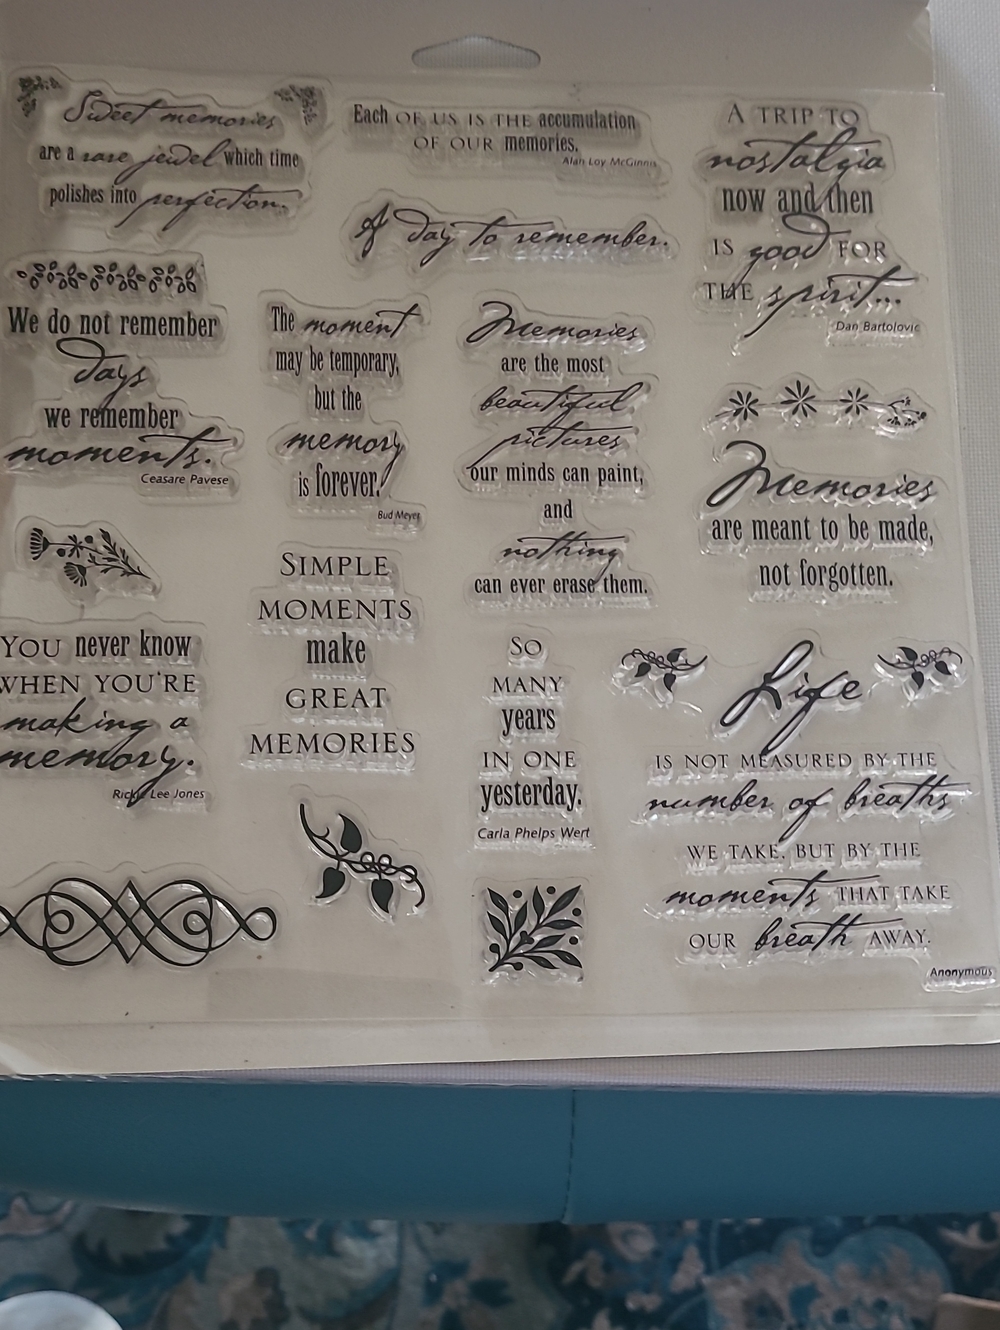 Sweet memories
are a rare jewel which time
polishes into perfection.
Each OF US IS THE accumulation
OF OUR memories.
Alan Loy McGinnis
A TRIP TO
nostalgia
now and then
IS good FOR
THE spirit...
Dan Bartolovic
A day to remember.
We do not remember
days
we remember
moments.
Ceasare Pavese
The moment
may be temporary,
but the
memory
is forever.
Bud Meyer
Memories
are the most
beautiful
pictures
our minds can paint,
and
nothing
can ever erase them.
Memories
are meant to be made,
not forgotten.
YOU never know
WHEN YOU'RE
making a
memory.
Rickie Lee Jones
SIMPLE
MOMENTS
make
GREAT
MEMORIES
SO
MANY
years
IN ONE
yesterday.
Carla Phelps Wert
Life
IS NOT MEASURED BY THE
number of breaths
WE TAKE, BUT BY THE
moments THAT TAKE
OUR breath AWAY.
Anonymous